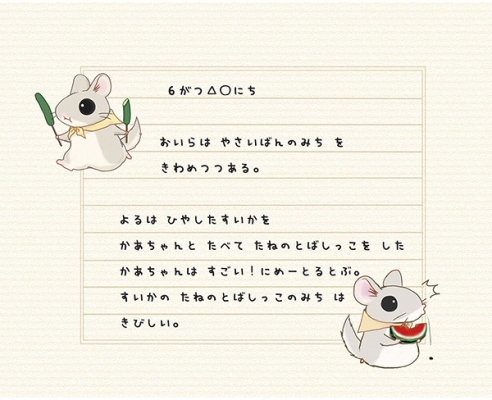 6がつ△〇にち
おいらは やさいばんのみち を
きわめつつある。
よるは ひやしたすいかを
かあちゃんと たべて たねのとばしっこを した
かあちゃんは すごい！にめーとるとぶ。
すいかの たねのとばしっこのみち は
きびしい。